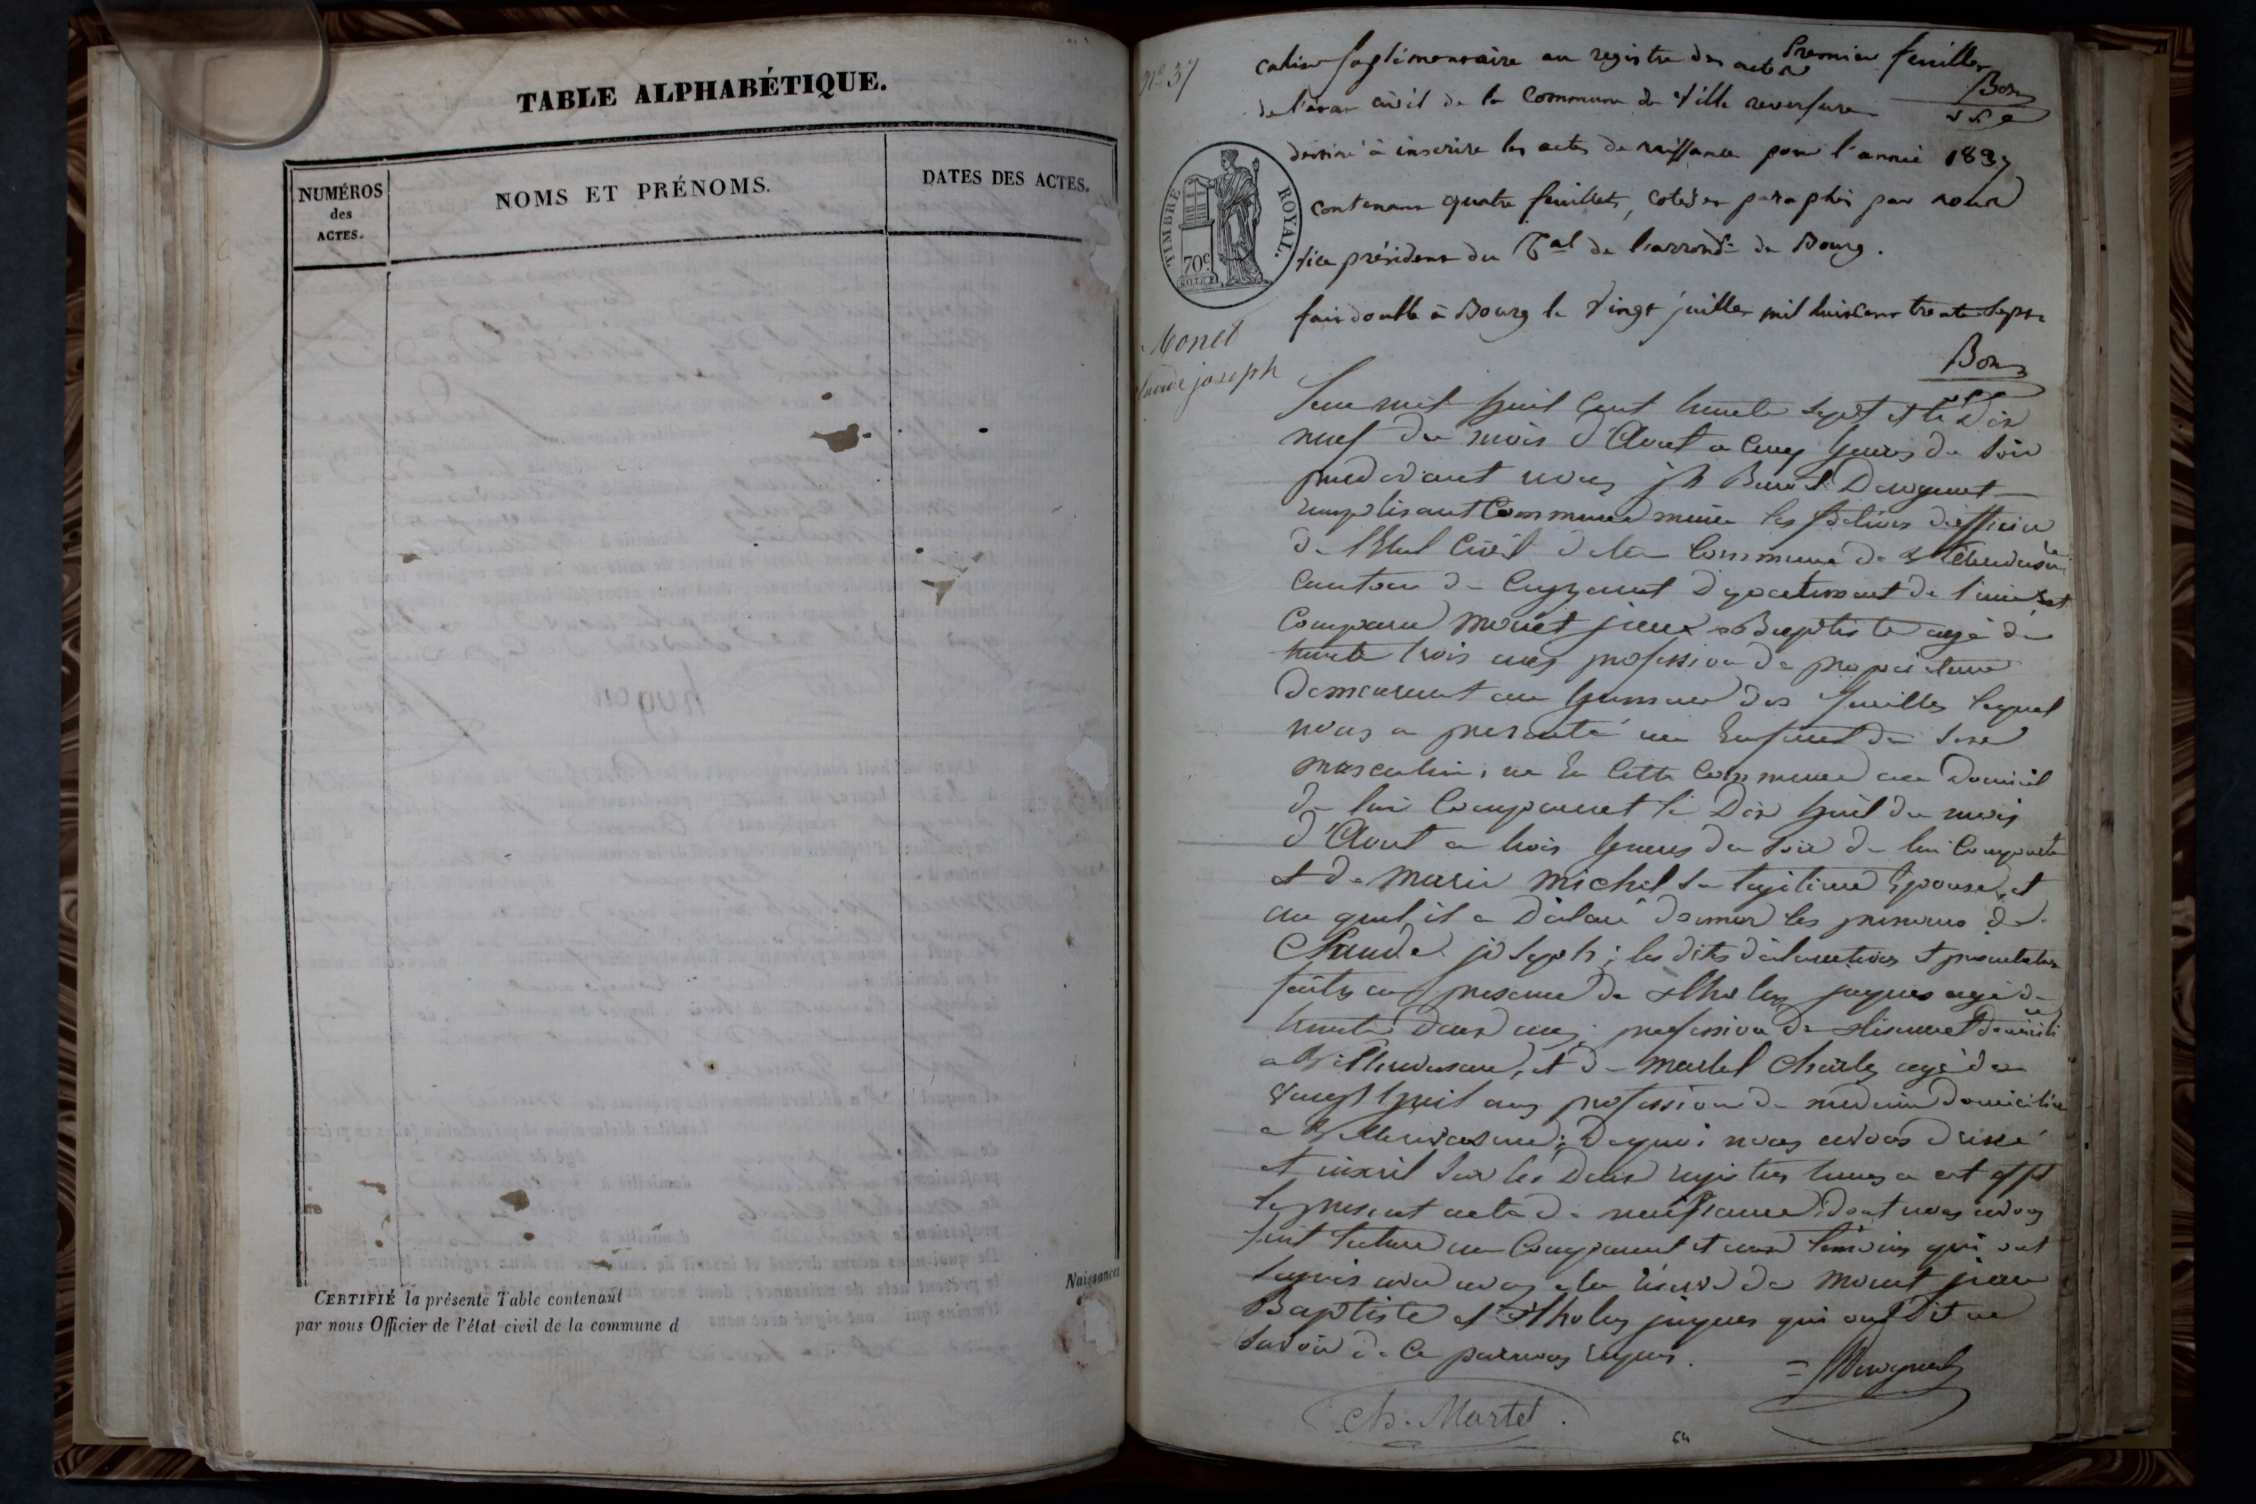 TABLE ALPHABÉTIQUE.
NUMÉROS
des
ACTES.
NOMS ET PRÉNOMS.
DATES DES ACTES.
Naissances
CERTIFIÉ la présente Table contenant
par nous Officier de l'état civil de la commune d
N° 37
Premier feuillet
Bon
cahier suplémentaire au registre des actes
de l'état civil de la Commune de Ville reversure
destiné à inscrire les actes de naissance pour l'année 1837
contenant quatre feuillets, cotés et paraphés par nous
vice président du Tal de l'arrondt de Bourg.
fait double à Bourg le vingt juillet mil huit cent trente sept
Bon
TIMBRE ROYAL.
70c
Monet
Claude joseph
L'an mil huit cent trente sept et le dix
neuf du mois d'Aout a cinq heures du soir
pardevant nous
remplisant comme maire les fonctions d'officier
de l'Etat Civil de la Commune de Villereversure
canton de Ceyzeriat département de l'ain est
comparu Monet jean Baptiste agé de
trente trois ans profession de propriétaire
demeurant au hameau des lequel
nous a presenté un Enfant du sexe
masculin, né En Cette Commune au Domicil
de lui Comparant le Dix huit du mois
d'Aout a trois heures du soir de lui Comparant
et de Marie Michel sa légitime Epouse, et
au quel il a déclaré donner les prenoms de
Claude joseph; les dites déclarations et presentation
faites en presence de jaques agé de
trente deux ans, profession de domicilié
a Villereversure, et de Martel Charles agé de
vingt huit ans profession de medecin domicilié
a Villereversure; De quoi nous avons dressé
et inscrit sur les deux registres tenus a cet effet
le present acte de naissance, dont nous avons
fait lecture au Comparant et aux temoins qui ont
signés avec nous a la reserve de Monet jean
Baptiste et jaques qui ont dit ne
savoir de ce par nous requis.
Ch. Martel
64